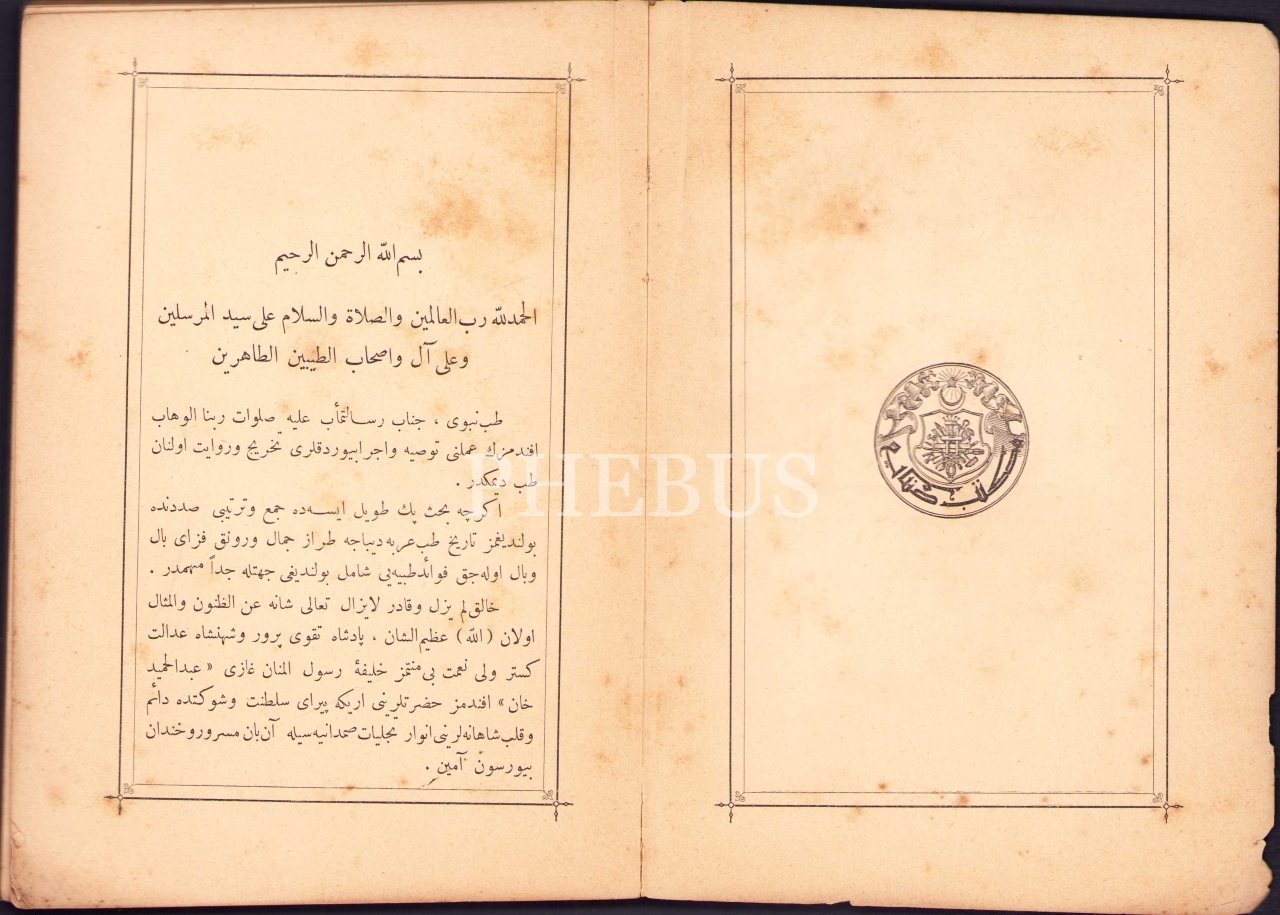 بسم الله الرحمن الرحيم
الحمد لله رب العالمين والصلاة والسلام على سيد المرسلين
وعلى آل واصحاب الطيبين الطاهرين
طب نبوى ، جناب رسالتمأب عليه صلوات ربنا الوهاب
افندمزك عملنى توصيه واجرا بيوردقلرى تخريج وروايت اولنان
طب ديمكدر .
اكرچه بحث پك طويل ايسه ده جمع وترتيبى صددنده
بولنديغمز تاريخ طب عربه ديباجه طراز جمال ورونق فزاى بال
وبال اوله جق فوائد طبيه يى شامل بولنديغى جهتله جداً مهمدر .
خالق لم يزل وقادر لايزال تعالى شانه عن الظنون والمثال
اولان (الله) عظيم الشان ، پادشاه تقوى پرور وشهنشاه عدالت
كستر ولى نعمت بى منتمز خليفهٔ رسول المنان غازى « عبدالحميد
خان » افندمز حضرتلرينى اريكه پيراى سلطنت وشوكتده دائم
وقلب شاهانه لرينى انوار تجليات صمدانيه سيله آن بان مسرور وخندان
بيورسون آمين .
PHEBUS